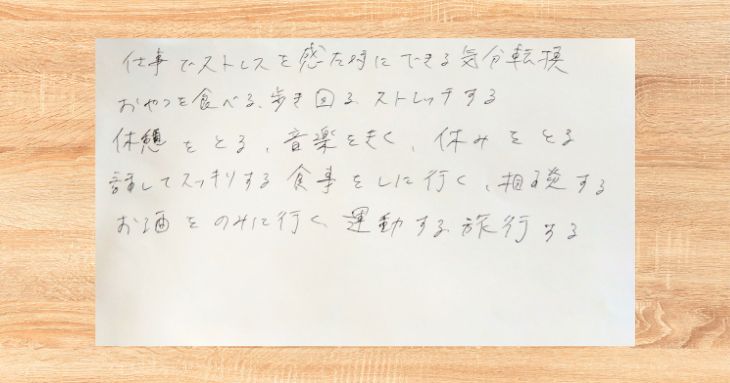 仕事でストレスを感た時にできる気分転換
おやつを食べる、歩き回る、ストレッチする
休憩をとる、音楽をきく、休みをとる
話してスッキリする 食事をしに行く、相談する
お酒をのみに行く、運動する、旅行する